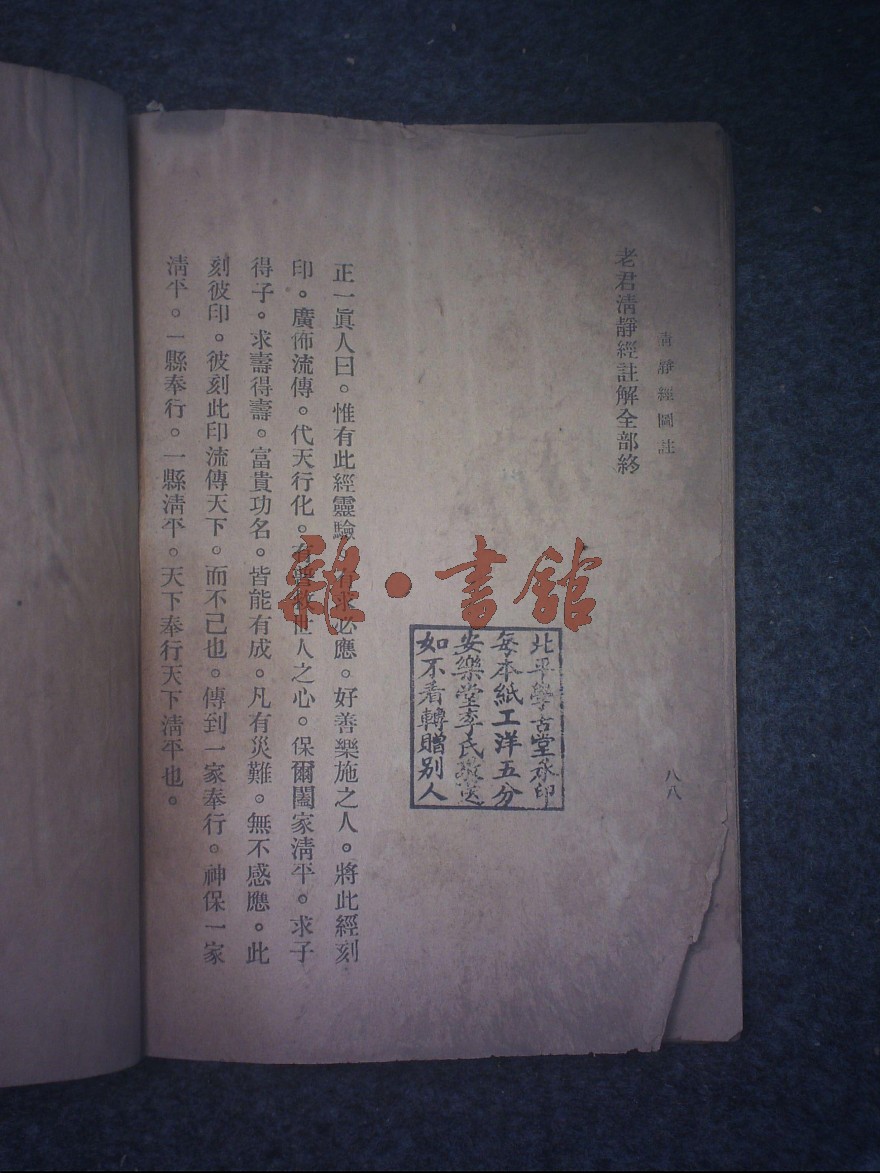 清靜經圖註
八八
老君清靜經註解全部終
北平學古堂承印
每本紙工洋五分
安樂堂李氏敬送
如不看轉贈別人
正一眞人曰。惟有此經靈驗。有求必應。好善樂施之人。將此經刻
印。廣佈流傳。代天行化。有善救世人之心。保爾闔家淸平。求子
得子。求壽得壽。富貴功名。皆能有成。凡有災難。無不感應。此
刻彼印。彼刻此印流傳天下。而不已也。傳到一家奉行。神保一家
淸平。一縣奉行。一縣淸平。天下奉行天下淸平也。
雜·書館